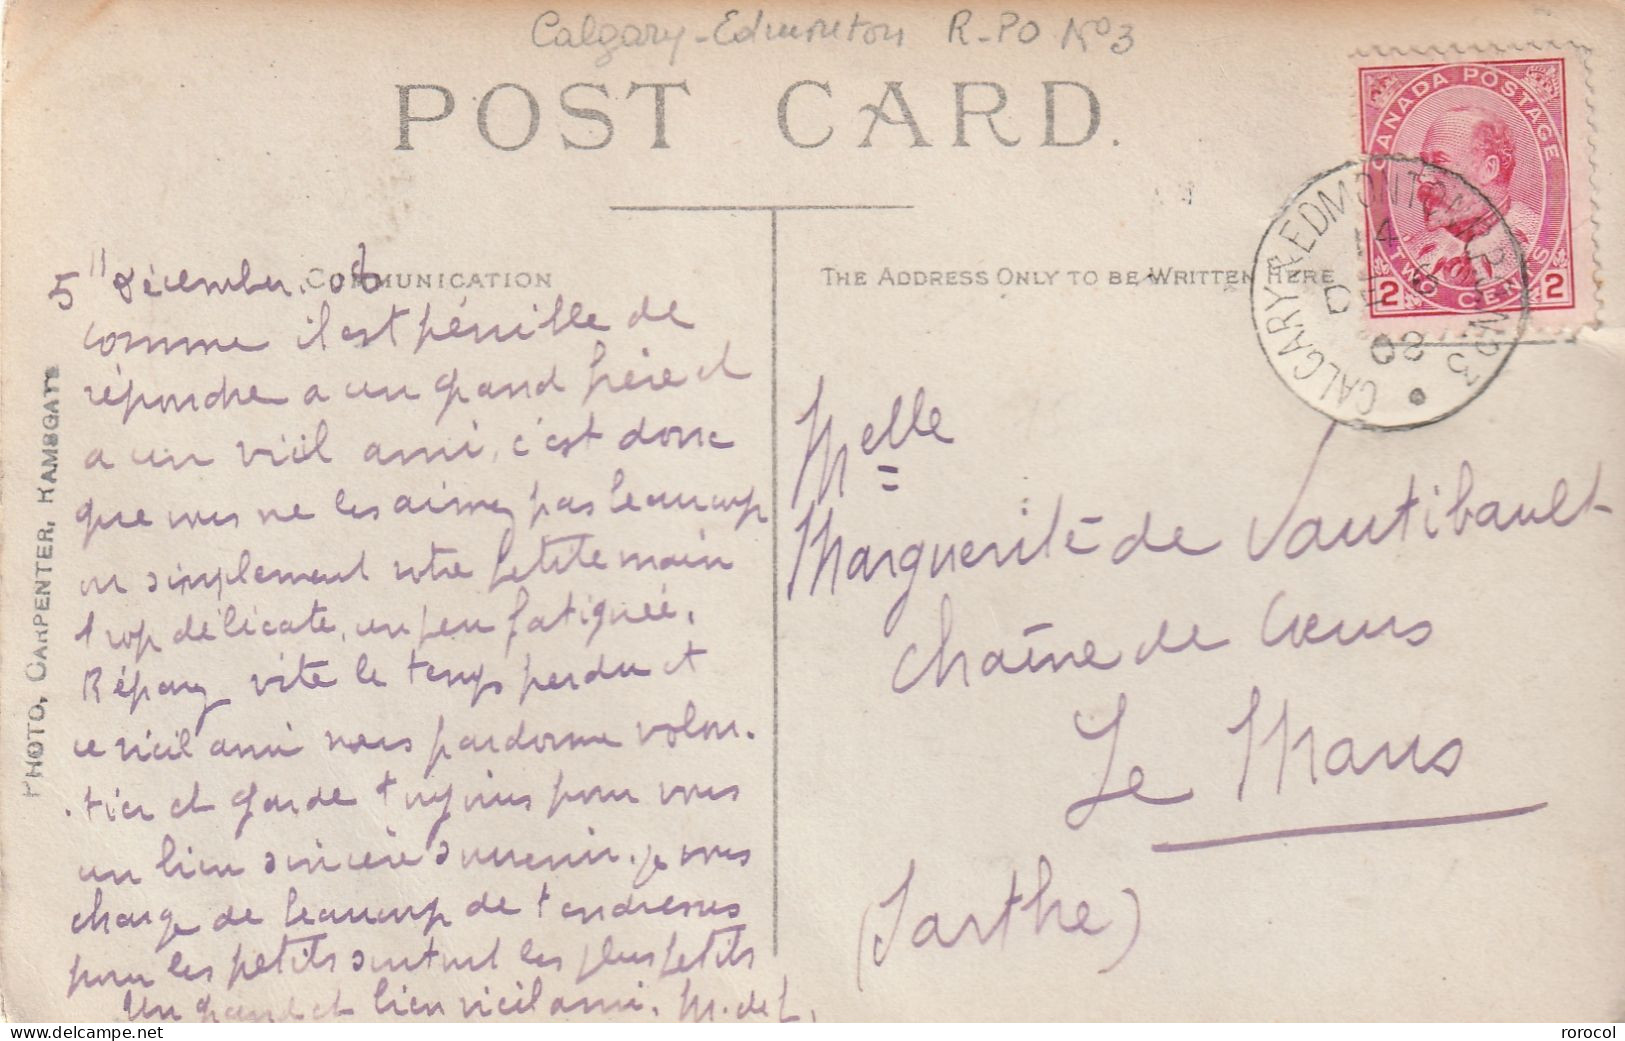 Calgary-Edmonton R-PO No 3
POST CARD.
CANADA POSTAGE
TWO CENTS
2 2
CALGARY & EDMONTON R.P.O. No 3
14
DE 6
08
COMMUNICATION
THE ADDRESS ONLY TO BE WRITTEN HERE
PHOTO, CARPENTER, RAMSGATE
5 décembre. 08
comme il est pénible de
répondre a un grand frère et
a un vieil ami, c'est donc
que vous ne les aimez pas beaucoup
ou simplement votre petite main
trop délicate, un peu fatiguée.
Réparez vite le temps perdu et
ce vieil ami vous pardonne volon-
-tier et garde toujours pour vous
un bien sincère souvenir. je vous
charge de beaucoup de tendresses
pour les petits surtout les plus petits
Un grand et bien vieil ami. M. de L.
Melle
Marguerite de Vautibault
Chaîne de Cœurs
Le Mans
(Sarthe)
rorocol